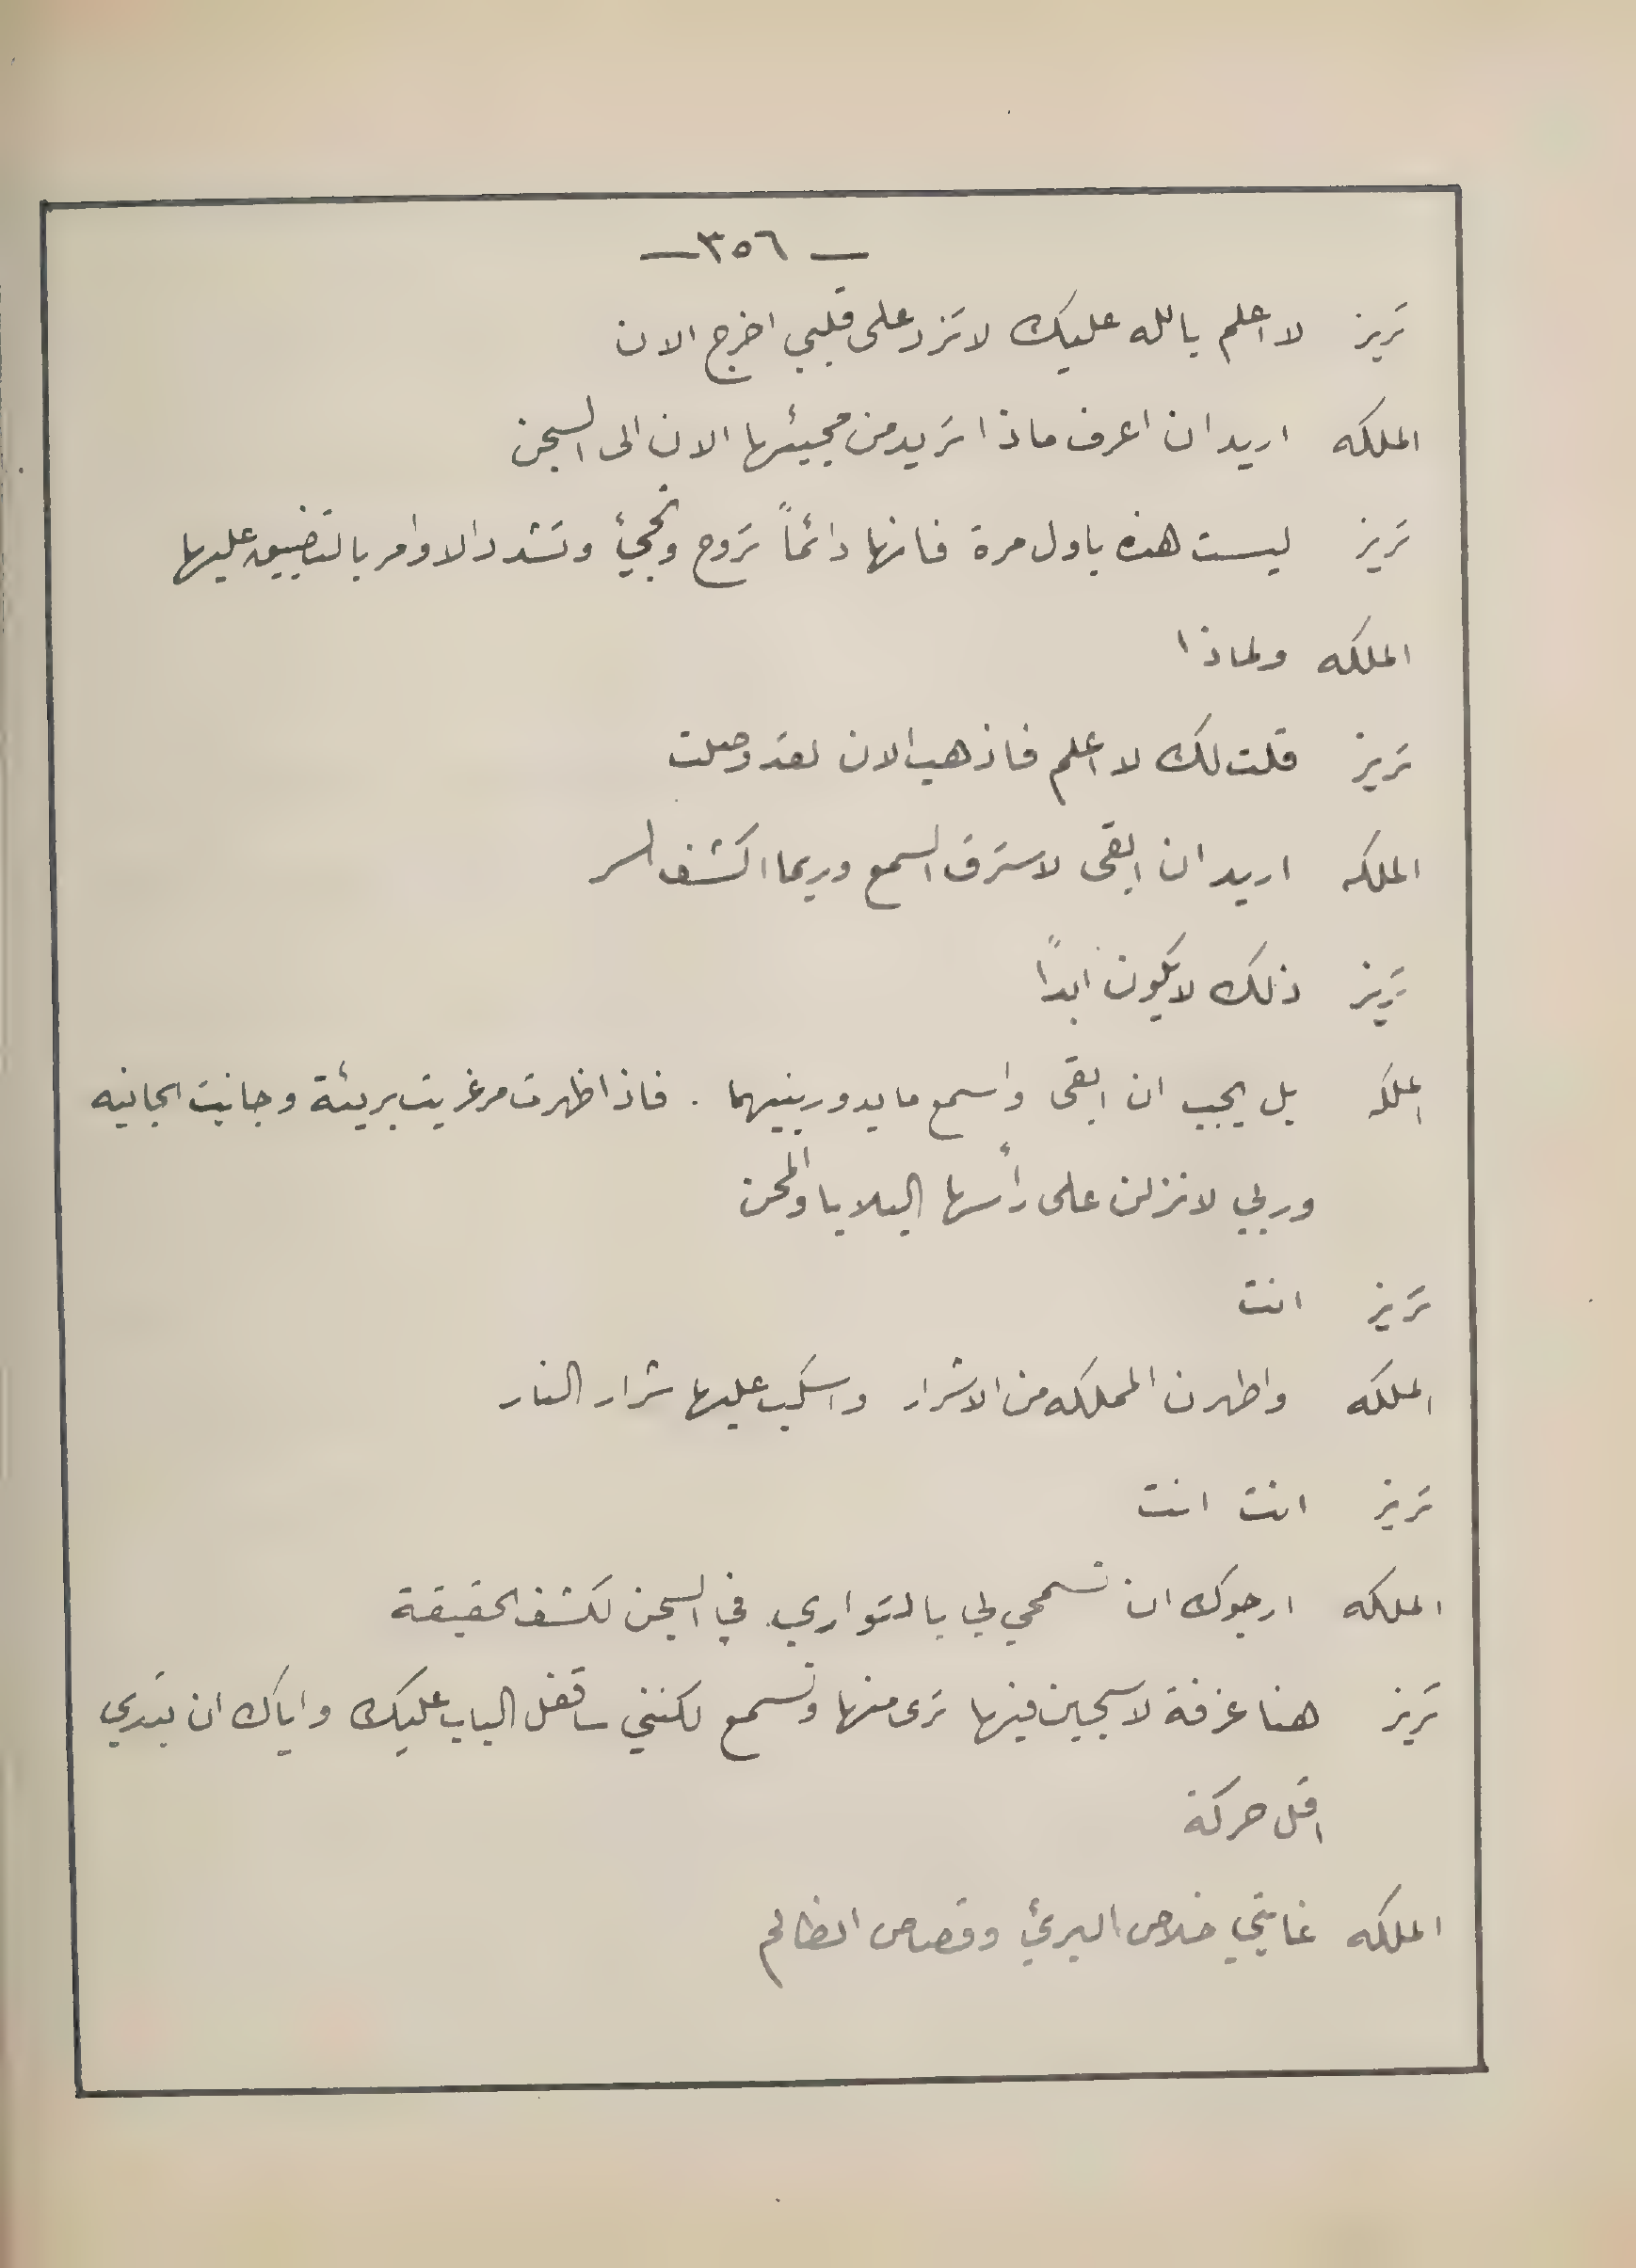 — ٣٥٦ —
تريز لا اعلم بالله عليك لا تزد على قلبي اخرج الان
الملكه اريد ان اعرف ماذا تريد من مجيئها الان الى السجن
تريز ليست هذه باول مرة فانها دائماً تروح وتجيئ وتشدد الاوامر بالتضييق عليها
الملكه ولماذا
تريز قلت لك لا اعلم فاذهب الان لقد وصلت
الملكه اريد ان ابقى لاسترق السمع وربما اكشف السر
تريز ذلك لا يكون ابداً
الملكه بل يجب ان ابقى واسمع ما يدور بينهما . فاذا ظهرت مرغريت بريئة وجانيت الجانيه
وربي لانزلن على رأسها البلايا والمحن
تريز انت
الملكه واطهرن المملكه من الاشرار واسكب عليها شرار النار
تريز انت انت
الملكه ارجوك ان تسمحي لي بالتواري في السجن لكشف الحقيقة
تريز هنا غرفة لا سجين فيها ترى منها وتسمع لكنني ساقفل الباب عليك واياك ان تبدي
اقل حركة
الملكه غايتي خلاص البريئ وقصاص الظالم